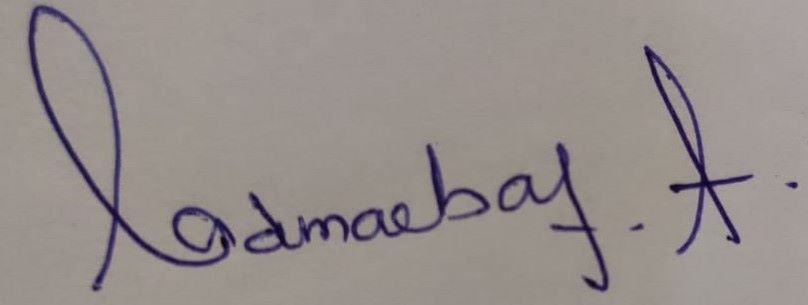 Padmaebaj. A.